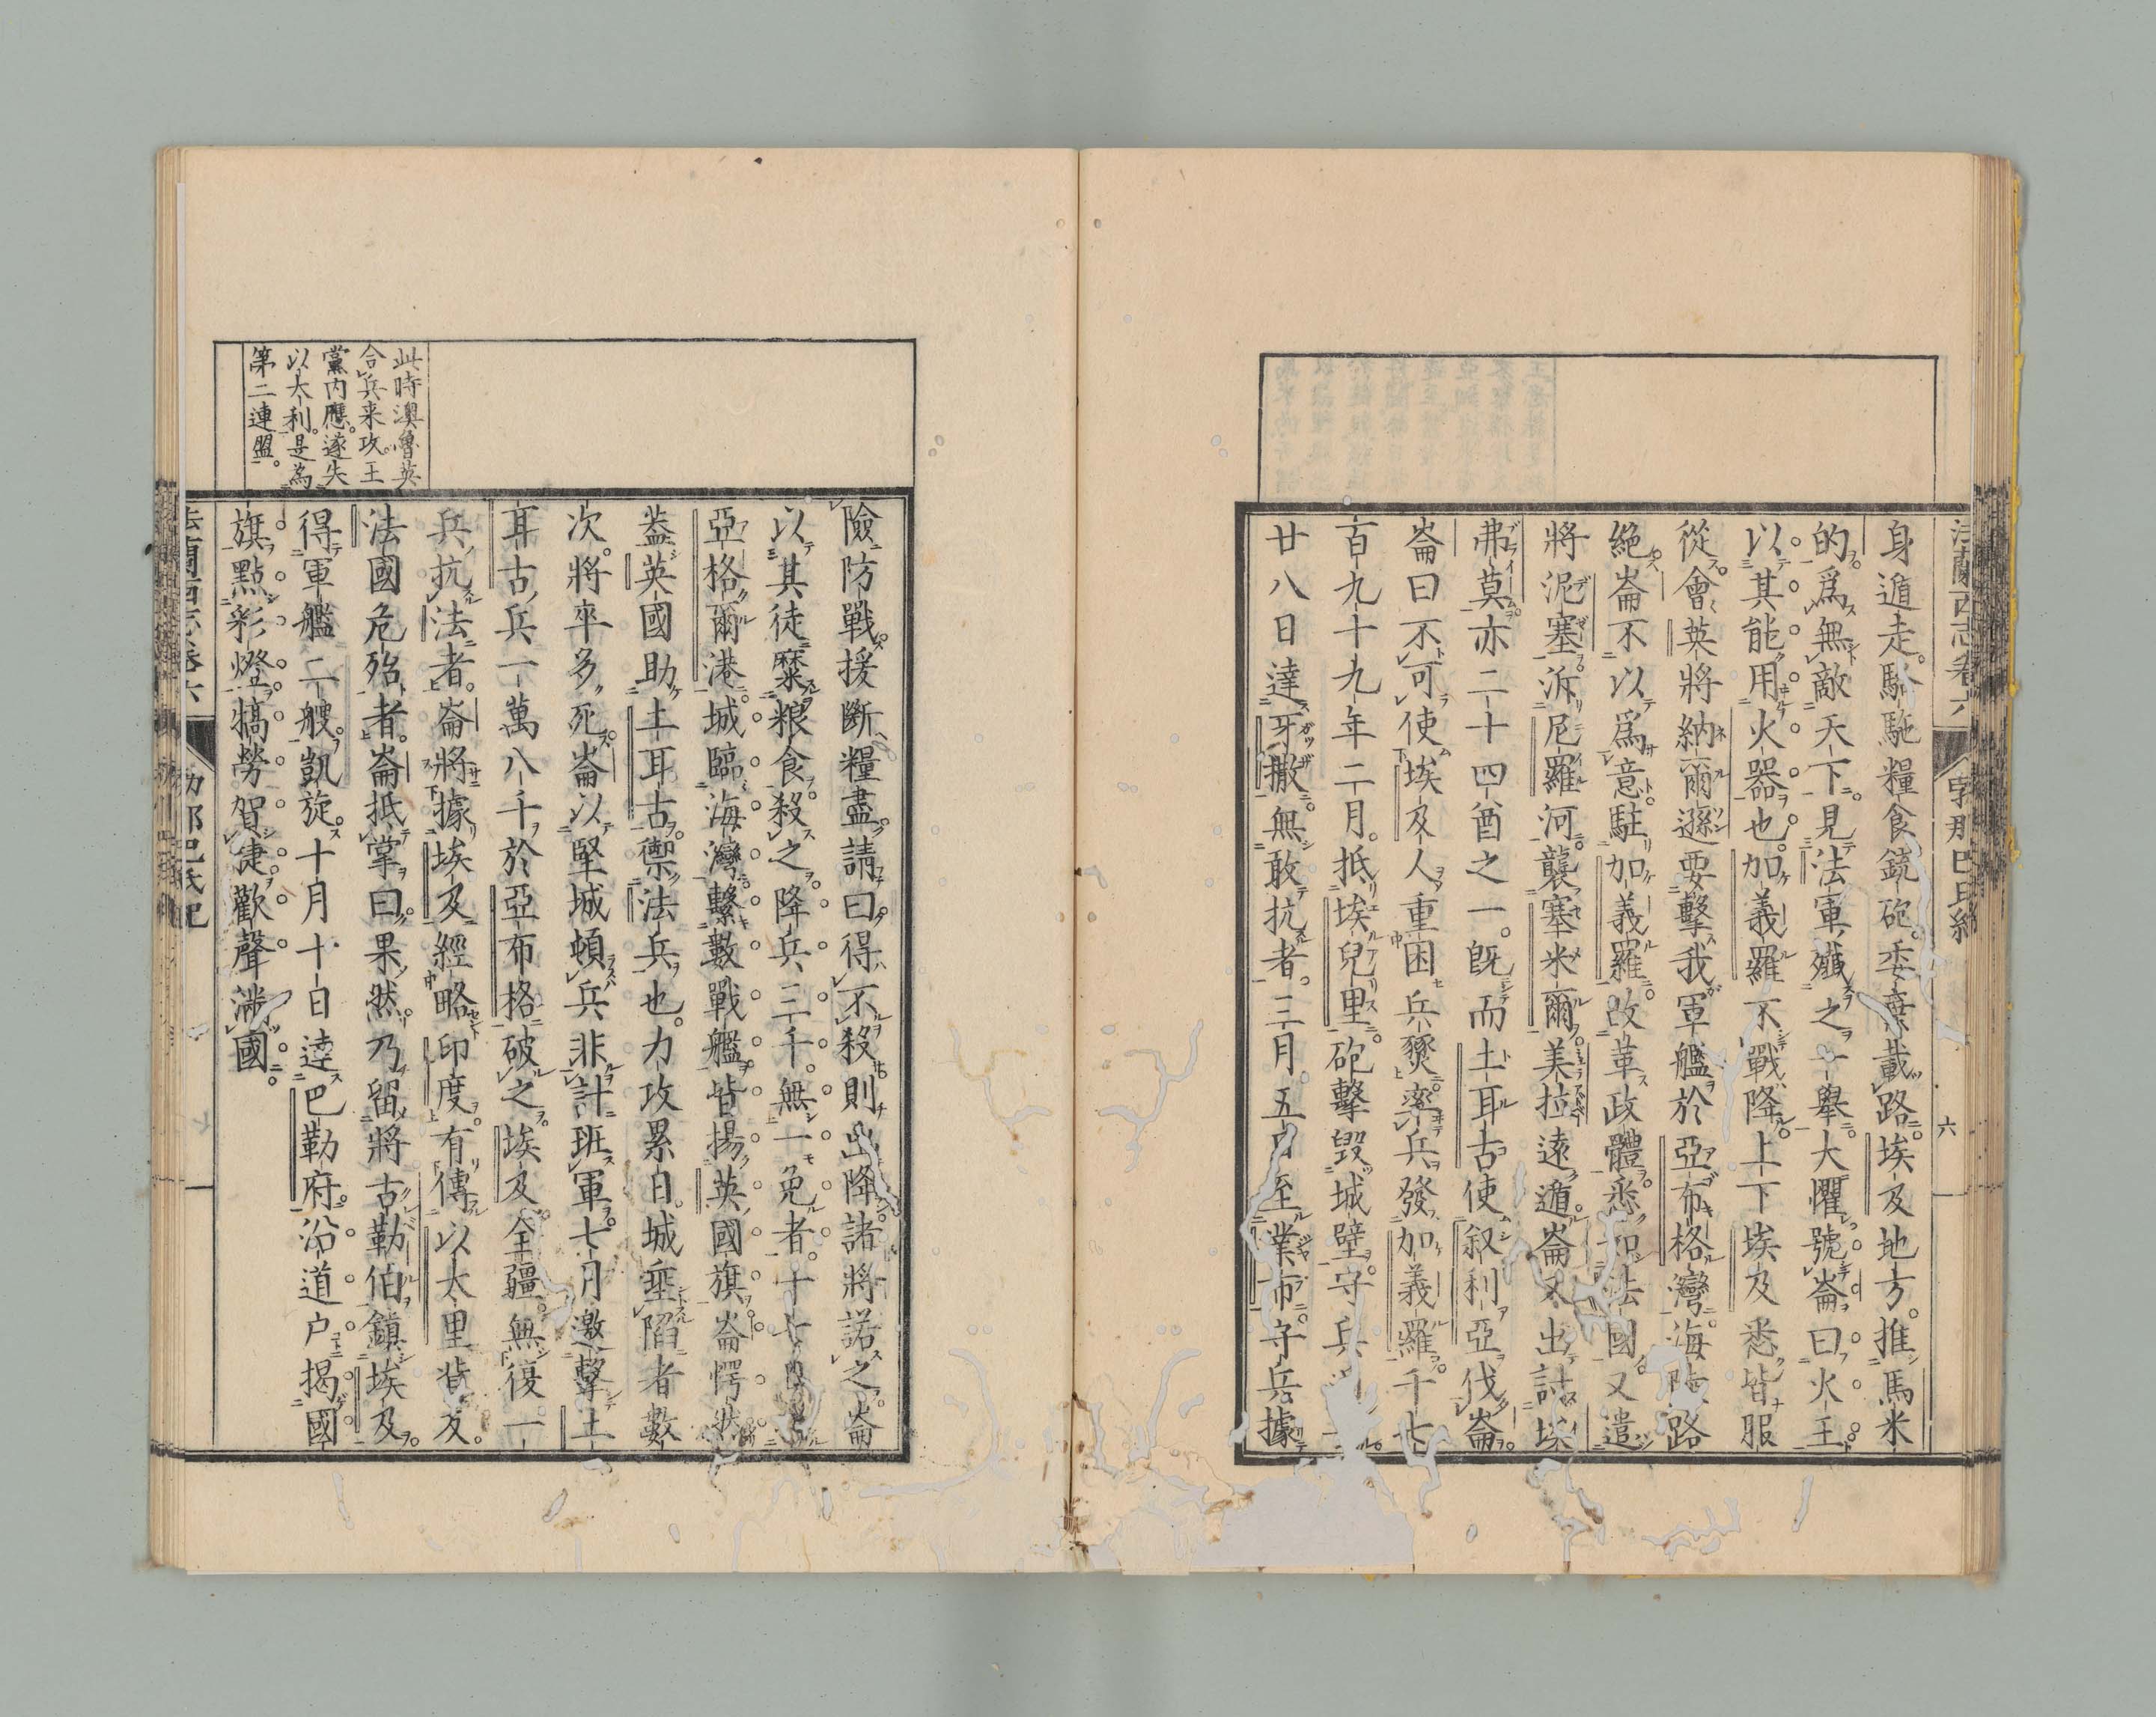 法蘭西志卷六
孛那巴氏紀
六
身遁走。駱駞糧食銃砲。委棄載路。埃及地方。推馬米
的爲無敵天下。見法軍殲之一舉。大懼號崙曰火王
以其能用火器也。加義羅不戰降。上下埃及悉皆服
從。會英將納爾遜要擊我軍艦於亞布格爾灣。海路
絕。崙不以爲意。駐加義羅。改革政體。悉如法國。又遣
將泥塞泝尼羅河。襲塞米爾。美拉遠遁。崙又出討埃
弗莫亦二十四酋之一。旣而土耳古使叙利亞伐崙。
崙曰不可使埃及人重困兵燹。率兵發加義羅。千七
百九十九年二月。抵埃兒里。砲擊毀城壁。守兵
廿八日達牙撒。無敢抗者。三月五日至業布。守兵據
險防戰。援斷糧盡。請曰。得不殺則出降。諸將諾之。崙
以其徒糜粮食。殺之。降兵三千。無一免者。十七日
亞格爾港。城臨海灣。繫數戰艦。皆揚英國旗。崙愕然。
蓋英國助土耳古。禦法兵也。力攻累日。城垂陷者數
次。將卒多死。崙以堅城頓兵非計。班軍。七月邀擊土
耳古兵一萬八千於亞布格。破之。埃及全疆。無復一
兵抗法者。崙將據埃及經略印度。有傳以太里背反。
法國危殆者。崙抵掌曰。果然。乃留將古勒伯鎮埃及。
得軍艦二艘。凱旋。十月十日達巴勒府。沿道户揭國
旗。點彩燈。犒勞賀捷。歡聲湧國。
此時澳魯英
合兵来攻。王
黨内應。遂失
以太利。是為
第二連盟。
法蘭西志卷六
勃那巴氏紀